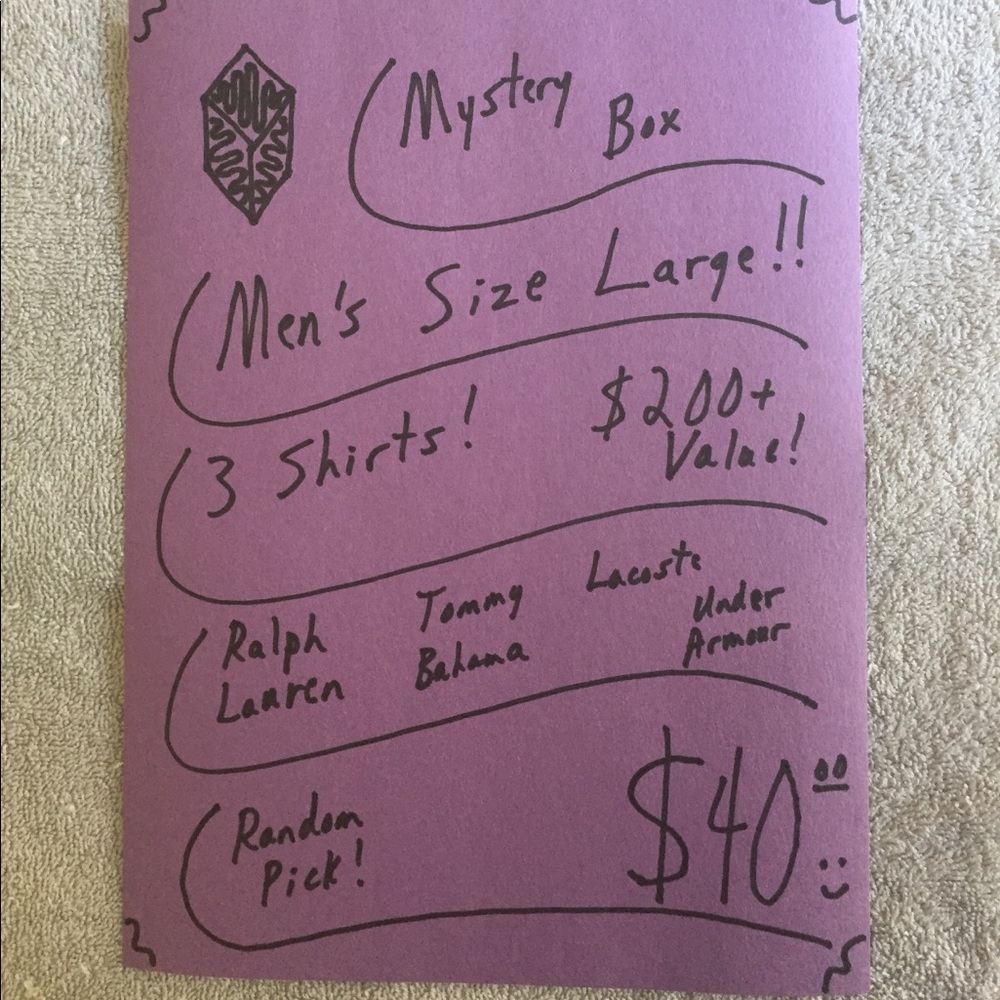 Mystery Box
Men's Size Large!!
3 Shirts! $200+
Value!
Ralph Tommy Lacoste
Lauren Bahama Under
Armour
Random
Pick!
$40 00